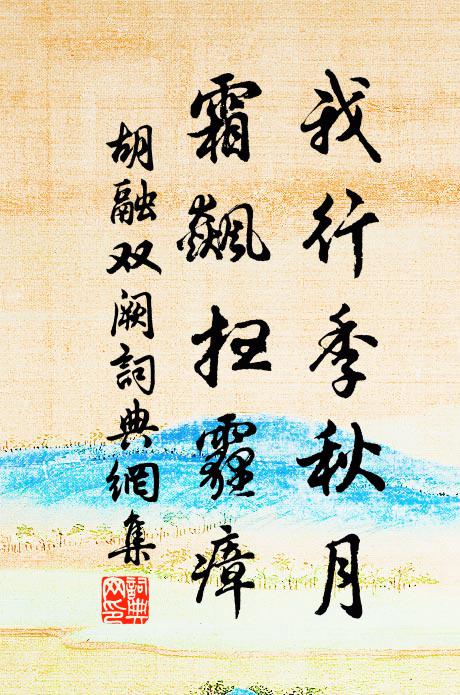 我行季秋月
霜飆扫霾瘴
胡融双阙詞典網集
詞典网印